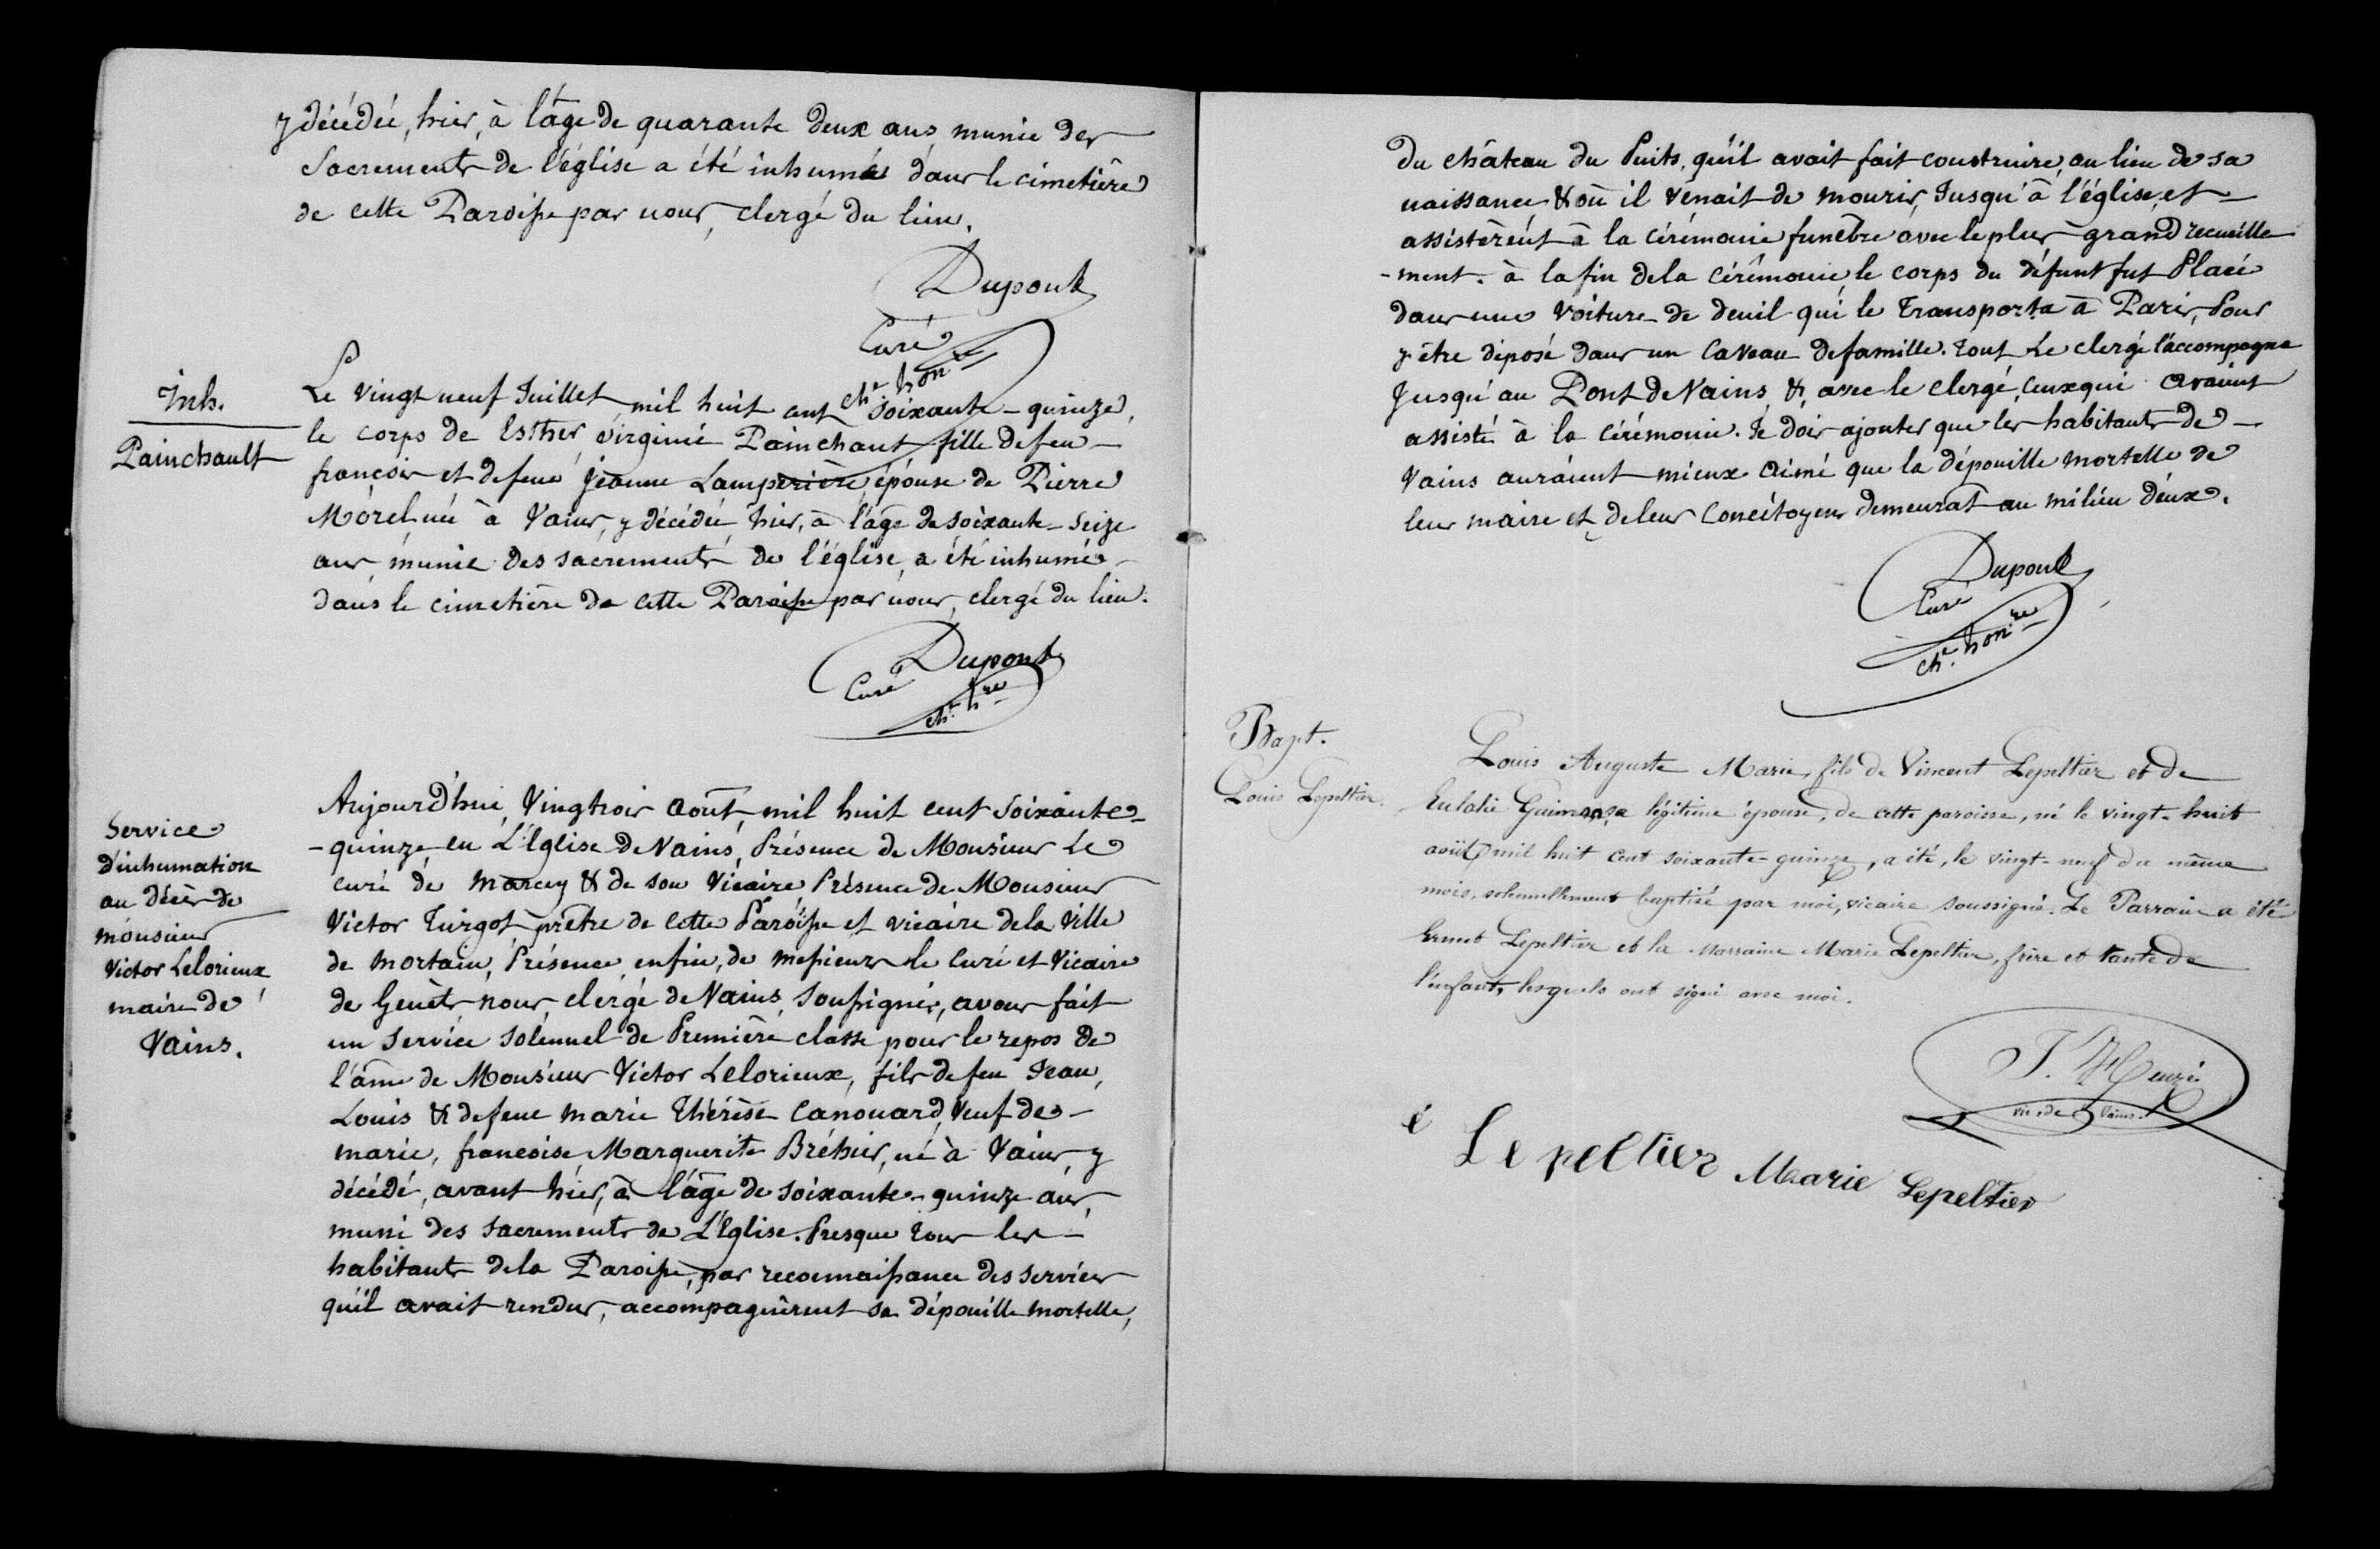 y décédée, hier, à l'âge de quarante deux ans munie des
Sacrements de l'église a été inhumée dans le cimetière
de cette Paroisse par nous, clergé du lieu.
Dupont
Curé
ch.e hon.re
Inh.
Painchault
Le vingt neuf Juillet mil huit cent soixante-quinze,
le corps de Esther, virginie Painchaut fille de feu
françois et de feue jeanne Lamperière épouse de Pierre
Morel née à Vains, y décédée hier, à l'âge de soixante-seize
ans, munie des sacrements de l'église, a été inhumée
dans le cimetière de cette Paroisse par nous, clergé du lieu.
Dupont
Curé
ch.e h.re
Service
d'inhumation
au décès de
monsieur
Victor Lelorieux
maire de
Vains.
Aujourd'hui, Vingtrois août, mil huit cent soixante-
-quinze, en L'Eglise de Vains, Présence de Monsieur Le
curé de marcey & de son Vicaire, Présence de Monsieur
Victor Turgot prêtre de cette Paroisse et vicaire de la Ville
de mortain, Présence enfin, de messieurs le Curé et Vicaire
de Genêts, nous, clergé de Vains, Soussignés, avons fait
un service solennel de Première classe pour le repos de
l'âme de Monsieur Victor Lelorieux, fils de feu Jean,
Louis & de feue marie Thérèse Canouard, Veuf de
marie, françoise, Marguerite Bréhier, né à Vains, y
décédé, avant hier, à l'âge de soixante-quinze ans,
muni des sacrements de L'Eglise. Presque tous les
habitants de la Paroisse, par reconnaissance des services
qu'il avait rendus, accompagnèrent sa dépouille mortelle,
du château du Puits, qu'il avait fait construire, au lieu de sa
naissance & où il venait de mourir, Jusqu'à l'église, et
assistèrent à la cérémonie funèbre avec le plus grand recueille
-ment. à la fin de la cérémonie, le corps du défunt fut Placé
dans une voiture de deuil qui le Transporta à Paris, Pour
y être déposé dans un Caveau de famille. tout Le clergé l'accompagna
Jusqu'au Pont de Vains, & avec le clergé, ceux qui avaient
assisté à la cérémonie. Je dois ajouter que les habitants de
Vains auraient mieux aimé que la dépouille mortelle de
leur maire et de leur Concitoyen demeurât au milieu d'eux.
Dupont
Curé
ch.e hon.re
Bapt.
Louis Lepeltier.
Louis Auguste Marie, fils de Vincent Lepeltier et de
Eulalie légitime épouse, de cette paroisse, né le vingt-huit
août, mil huit cent soixante-quinze, a été, le vingt-neuf du même
mois, solennellement baptisé par moi, vicaire soussigné. Le Parrain a été
Ernest Lepeltier et la Marraine Marie Lepeltier, frère et tante de
l'enfant, lesquels ont signé avec moi.
vic. de Vains.
é Lepeltier Marie Lepeltier